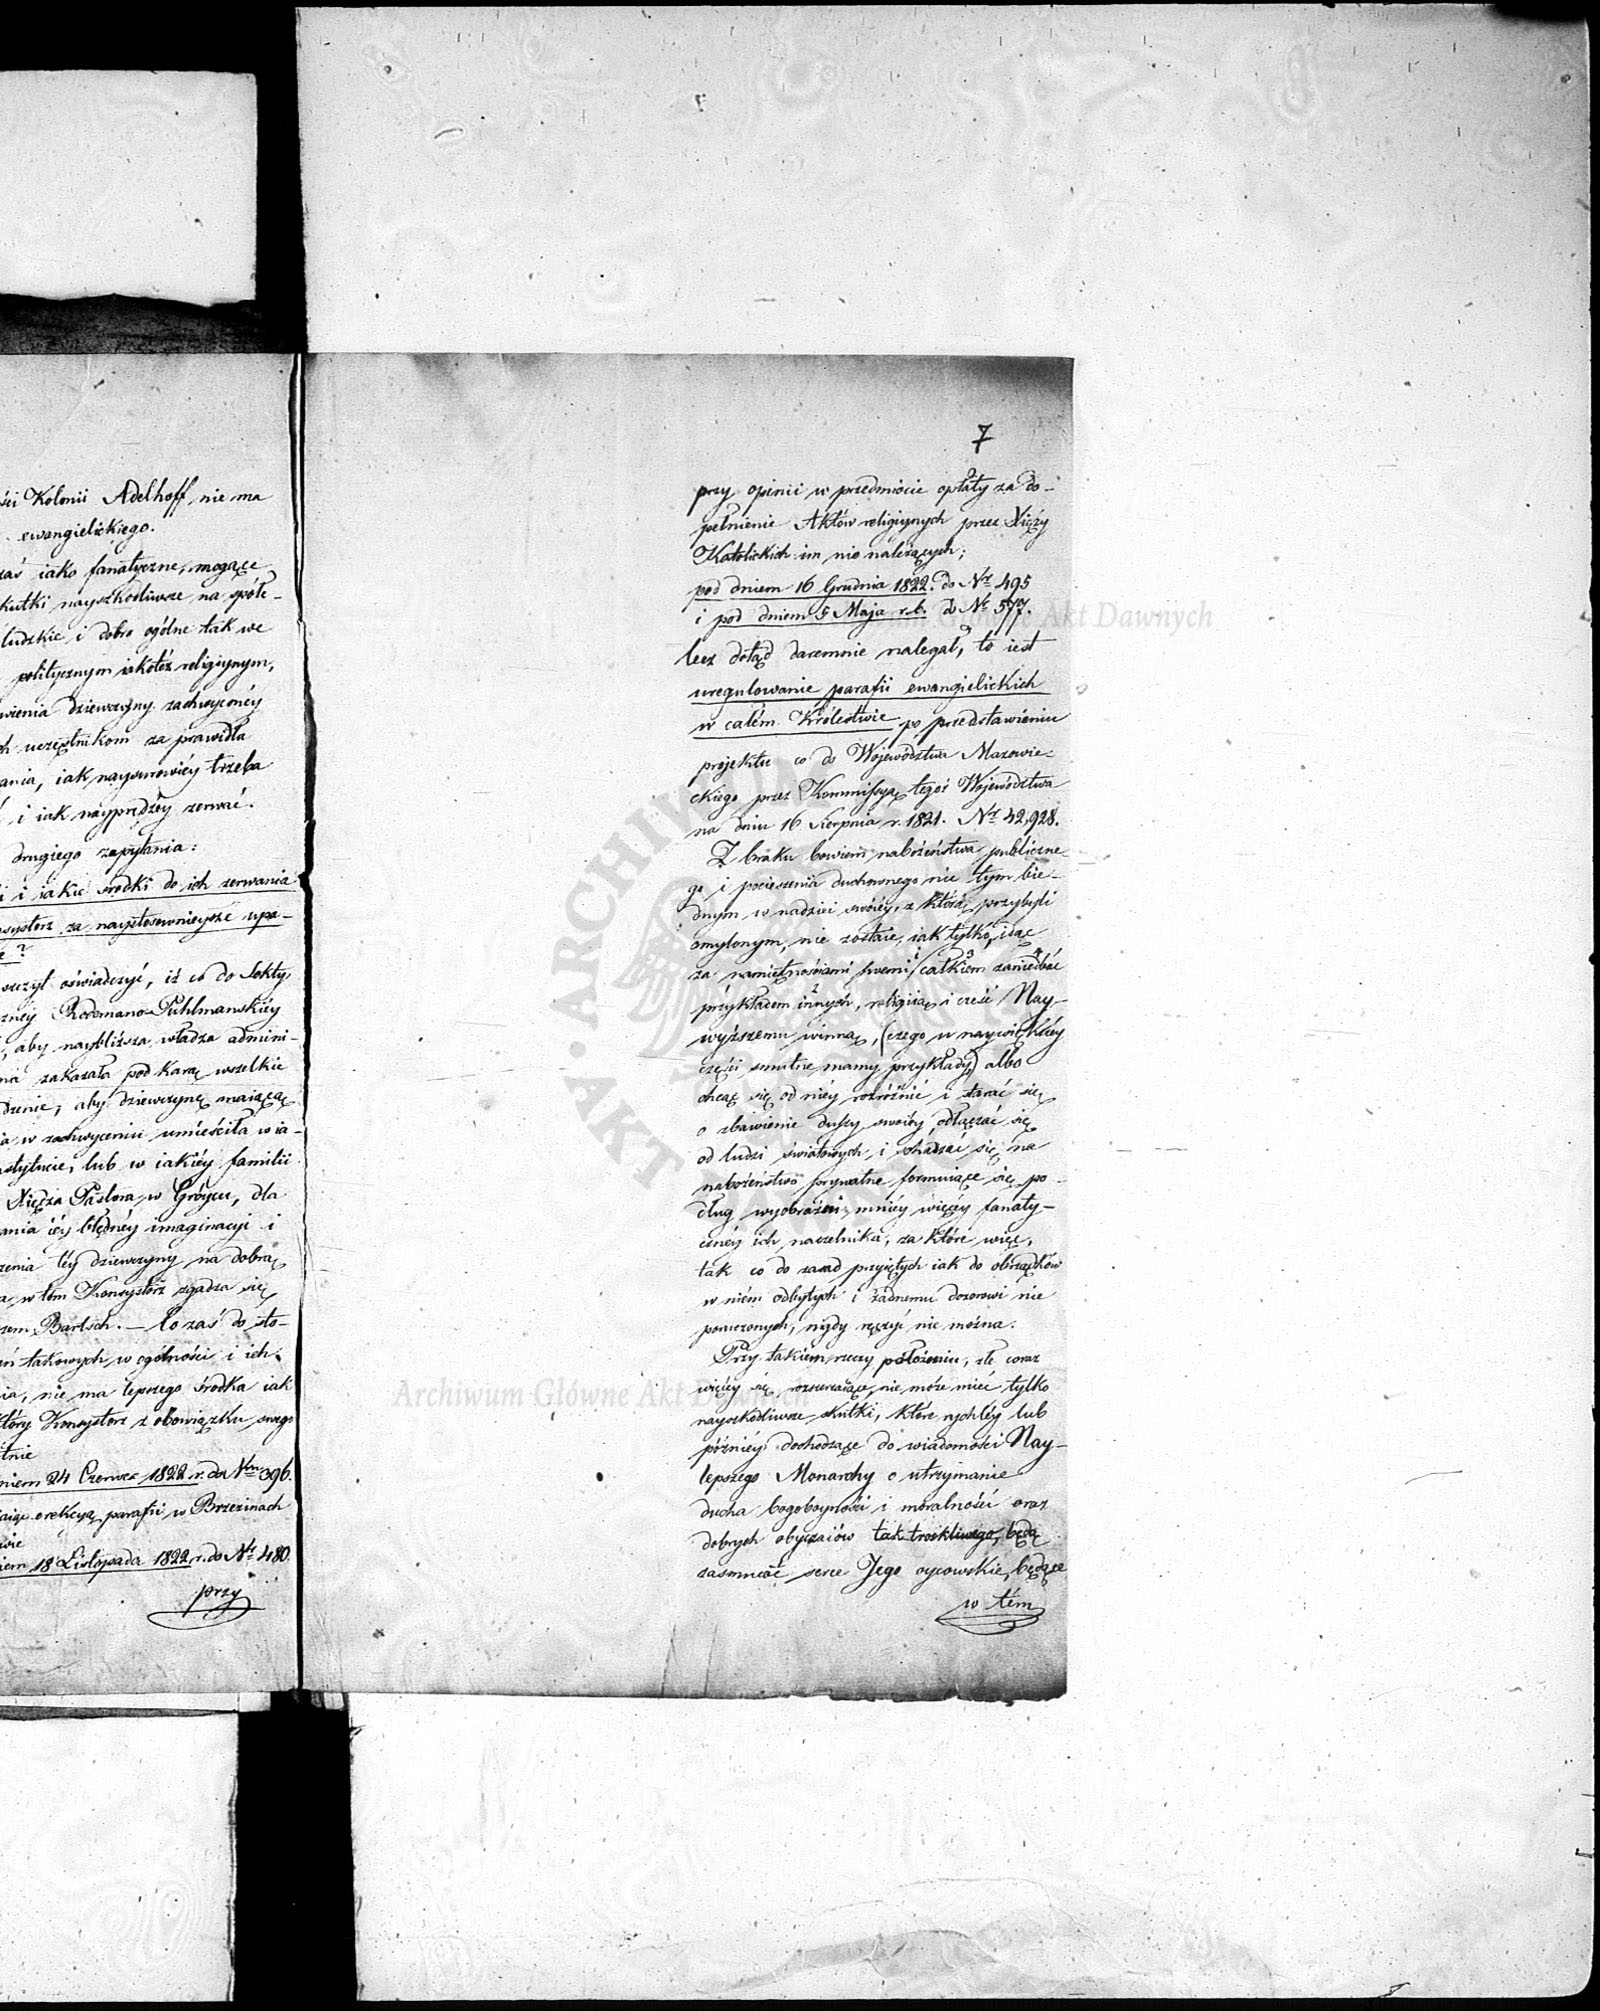 ści Kolonii Adelhoff nie ma
ewangielickiego.
zaś iako fanatyczne, mogące
skutki nayszkodliwsze na społe-
ludzkie i dobro ogólne tak we
politycznym iakoteż religiynym,
wienia dziewczyny zachwyconéy
ch uczęstnikom za prawidła
ania, iak naysurowiéy trzeba
i iak nayprędzéy zerwać.
drugiego zapytania:
i i iakie środki do ich zerwania
nsystorz za naystosownieysze upa-
e?
szczyt oświadczyć, iż co do Sekty
znéy Rodemano-Puhlmanskiéy
, aby naybliższa władza admini-
na zakazała pod karą wszelkie
dzenie, aby dziewczynę maiącą
ia w zachwyceniu umieściła w ia-
nstytucie, lub w iakiéy familii
Xiędza Pastora w Gróycu, dla
ania iéy błędnéy imaginacyi i
zenia téy dziewczyny na dobrą
a w tém Konsystorz zgadza się
zem Bartsch. — Co zaś do sto-
eń takowych w ogólności i ich
ia, nie ma lepszego środka iak
który Konsystorz z obowiązku swego
tnie
niem 24 Czerwca 1822 r. do Nru 396.
aiąc erekcyą parafii w Brzezinach
wie
iem 18 Listopada 1822 r. do Nr 480.
przy
7
przy opinii w przedmiocie opłaty za do-
pełnienie Aktów religiynych przez Xięży
Katolickich im nie należących;
pod dniem 16 Grudnia 1822. do Nr 495
i pod dniem 5 Maja r. b. do Nr 577.
lecz dotąd daremnie nalegał, to iest
uregulowanie parafii ewangielickich
w całém Królestwie po przedstawieniu
projektu co do Województwa Mazowie-
ckiego przez Kommissyą tegoż Województwa
na dniu 16 Sierpnia r. 1821. Nr 42,928.
Z braku bowiem nabożeństwa publiczne-
go i pocieszenia duchownego nic tym bie-
dnym w nadziei swoiéy, z którą przybyli
omylonym, nie zostaie, iak tylko, idąc
za namiętnościami swemi całkiem zaniedbać
przykładem innych, religiią i cześć Nay-
wyższemu winną, (czego w naywiększéy
części smutne mamy przykłady) albo
chcąc się od niéy rozróżnić i starać się
o zbawienie duszy swoiéy, odłączać się
od ludzi światowych, i schadzać się na
nabożeństwo prywatne formuiące się po-
dług wyobrażeń, mniéy więcéy fanaty-
cznéy ich naczelnika, za które więc,
tak co do zasad przyiętych iak do obrządków
w niém odbytych i żadnemu dozorowi nie
poruczonych, nigdy ręczyć nie można.
Przy takiém rzeczy położeniu, złe coraz
więcéy się rozszerzaiące, nie może mieć tylko
nayszkodliwsze skutki, które rychléy lub
późniéy dochodzące do wiadomości Nay-
lepszego Monarchy o utrzymanie
ducha bogoboyności i moralności oraz
dobrych obyczaiów tak troskliwego, będą
zasmucać serce Jego oycowskie, będące
w tém
Archiwum Główne Akt Dawnych